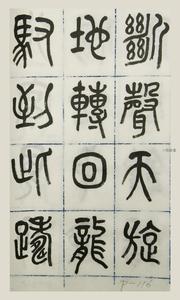 斷聲天旋
地轉回龍
馭到此躊